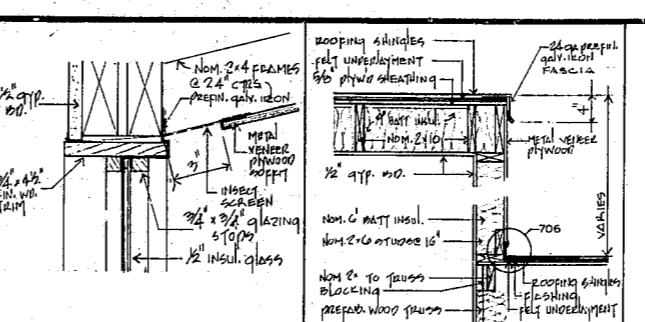 1/2" GYP.
BD.
NOM. 2x4 FRAMES
@ 24" CTRS
PREFIN. GALV. IRON
METAL
VENEER
PLYWOOD
SOFFIT
3"
INSECT
SCREEN
3/4" x 4 1/2"
FIN. WD.
TRIM
3/4" x 3/4" GLAZING
STOPS
1/2" INSUL. GLASS
ROOFING SHINGLES
FELT UNDERLAYMENT
5/8" PLYW'D SHEATHING
24 GA PREFIN.
GALV. IRON
FASCIA
4"
BATT INSUL.
NOM. 2x10
METAL VENEER
PLYWOOD
1/2" GYP. BD.
VARIES
NOM. 6" BATT INSUL.
NOM. 2x6 STUDS @ 16"
706
NOM 2x TO TRUSS
BLOCKING
PREFAB. WOOD TRUSS
ROOFING SHINGLES
FLASHING
FELT UNDERLAYMENT